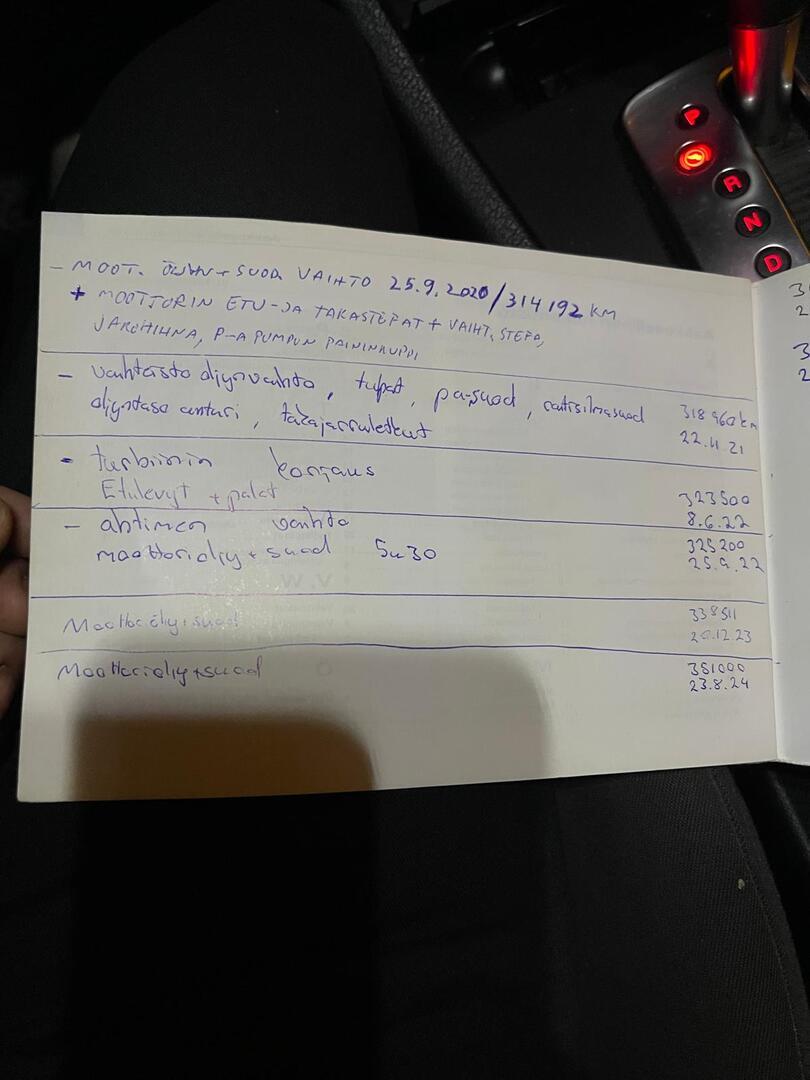 - MOOT. ÖLJYN + SUOD. VAIHTO 25.9.2020/314192 KM
+ MOOTTORIN ETU-JA TAKASTEFAT + VAIHT. STEFA,
JAKOHIHNA, P-A PUMPUN PAININKUPPI
- vaihteisto öljynvaihto, tulpat, pa-suod, raitisilmasuod 318960km
öljyntaso anturi, takajarruletkut 22.11.21
- turbiinin korjaus
Etulevyt + palat 323500
8.6.22
- ahtimen vaihto 325200
moottoriöljy + suod 5w30 25.9.22
Moottoriöljy + suod 338511
23
Moottoriöljy + suod 351000
23.8.24
P
R
N
D
3
2
3
2